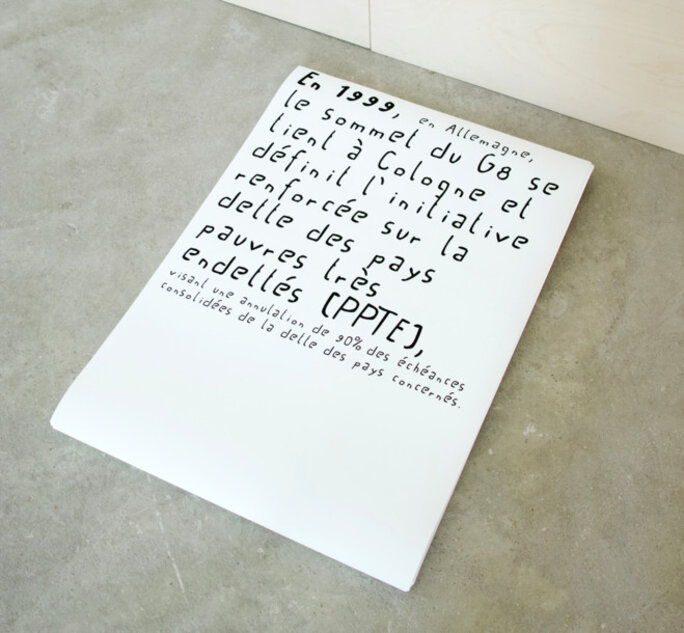 En 1999, en Allemagne,
le sommet du G8 se
tient à Cologne et
définit l'initiative
renforcée sur la
dette des pays
pauvres très
endettés (PPTE),
visant une annulation de 90% des échéances
consolidées de la dette des pays concernés.